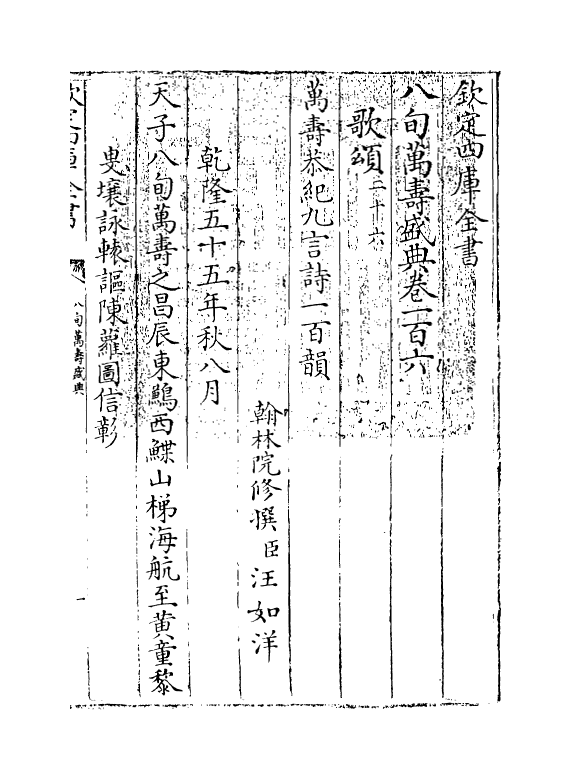 欽定四庫全書
八旬萬壽盛典卷一百六
歌頌二十六
萬壽恭紀九言詩一百韻
翰林院修撰臣汪如洋
乾隆五十五年秋八月
天子八旬萬壽之昌辰東鶼西鰈山梯海航至黄童黎
叟壤詠轅謳陳蘿圖信彰
欽定四庫全書
八旬萬壽盛典
一